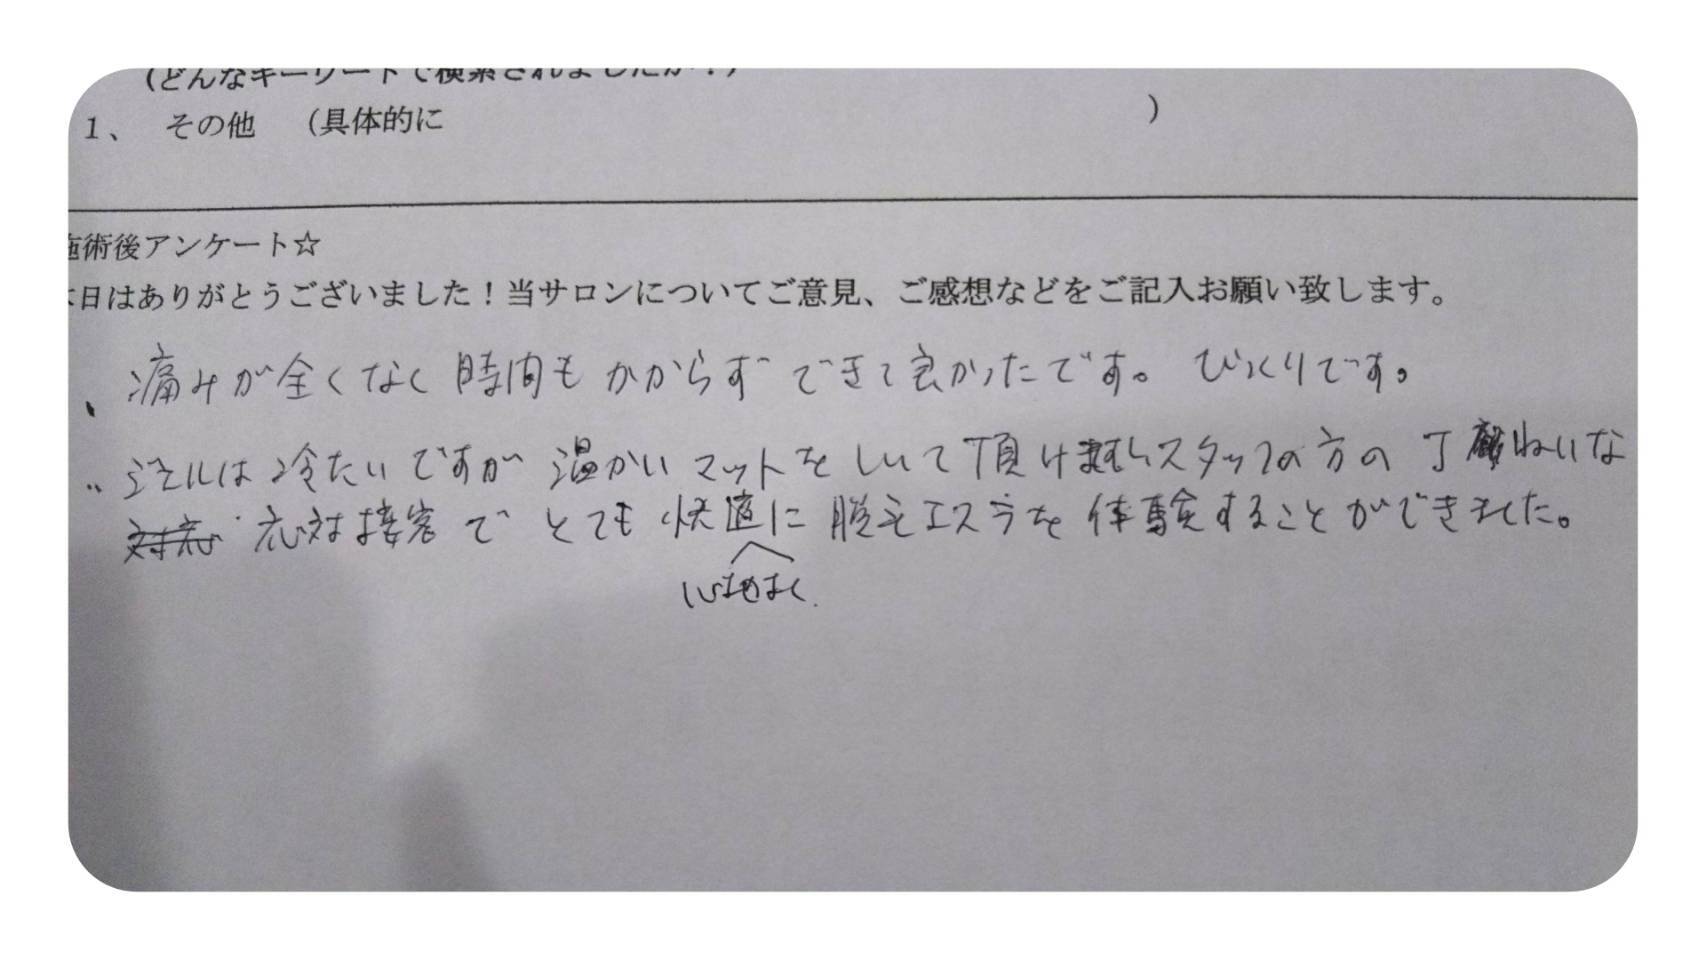 (どんなキーワードで検索されましたか？)
1、 その他 (具体的に )
施術後アンケート☆
本日はありがとうございました！当サロンについてご意見、ご感想などをご記入お願い致します。
、痛みが全くなく時間もかからずできて良かったです。びっくりです。
ジェルは冷たいですが温かいマットをしいて頂けますしスタッフの方の丁ねいな
対応 応対接客でとても快適に脱毛エステを体験することができました。
心地よく